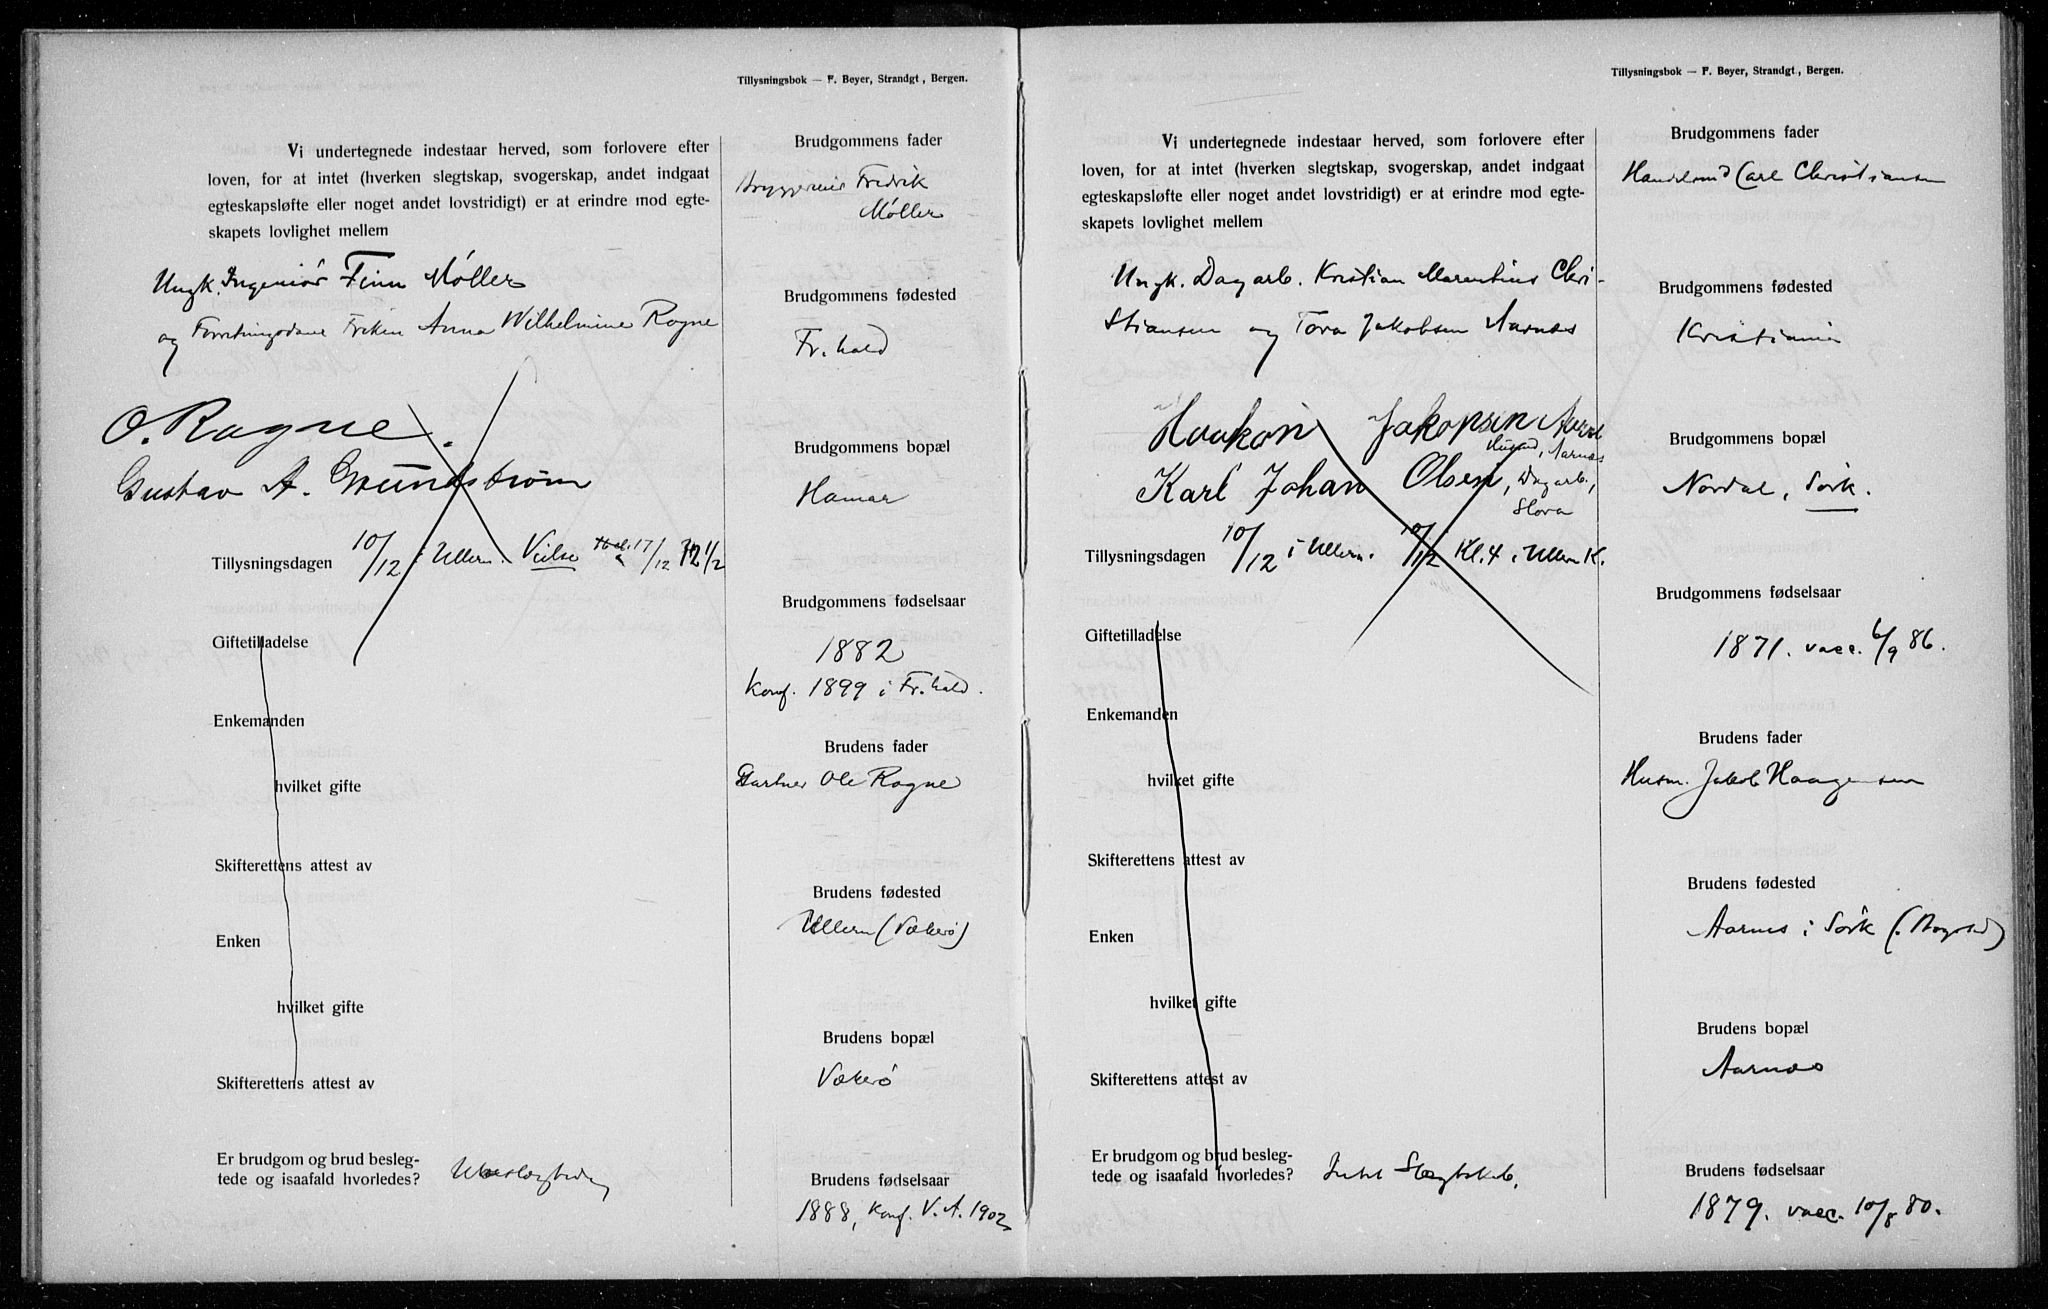 Tillysningsbok — F. Beyer, Strandgt., Bergen.
Vi undertegnede indestaar herved, som forlovere efter
loven, for at intet (hverken slegtskap, svogerskap, andet indgaat
egteskapsløfte eller noget andet lovstridigt) er at erindre mod egte-
skapets lovlighet mellem
Ungk. Ingeniør Finn Møller
og Forretningsdame Frøken Anna Wilhelmine Rogne
O. Rogne.
Gustav A. Grundstrøm
Tillysningsdagen 10/12 i Ullern. Vielse 17/12 12 1/2
Giftetilladelse
Enkemanden
hvilket gifte
Skifterettens attest av
Enken
hvilket gifte
Skifterettens attest av
Er brudgom og brud besleg-
tede og isaafald hvorledes? Ubeslegtede
Brudgommens fader
Fredrik
Møller
Brudgommens fødested
Fr.hald
Brudgommens bopæl
Hamar
Brudgommens fødselsaar
1882
Konf. 1899 i Fr.hald.
Brudens fader
Gartner Ole Rogne
Brudens fødested
Ullern (Vækerø)
Brudens bopæl
Vækerø
Brudens fødselsaar
1888, Konf. V. A. 1902
Tillysningsbok — F. Beyer, Strandgt., Bergen.
Vi undertegnede indestaar herved, som forlovere efter
loven, for at intet (hverken slegtskap, svogerskap, andet indgaat
egteskapsløfte eller noget andet lovstridigt) er at erindre mod egte-
skapets lovlighet mellem
Ungk. Dagarb. Kristian Marentius Chri-
stiansen og Tora Jakobsen Aarnes
Haakon Jakopsen
Aarnæs
Karl Johan Olsen, Dagarb.,
Tillysningsdagen 10/12 i Ullern. 10/12 Kl. 4 i Ullern K.
Giftetilladelse
Enkemanden
hvilket gifte
Skifterettens attest av
Enken
hvilket gifte
Skifterettens attest av
Er brudgom og brud besleg-
tede og isaafald hvorledes? Intet Slegtskab.
Brudgommens fader
Handelsmd Carl Christiansen
Brudgommens fødested
Kristiania
Brudgommens bopæl
Nordal, Sørk.
Brudgommens fødselsaar
1871. vacc. 6/9 86.
Brudens fader
Husm. Jakob Haagensen
Brudens fødested
Aarnes i Sørk (Bogstad)
Brudens bopæl
Aarnæs
Brudens fødselsaar
1879. vacc. 10/8 80.